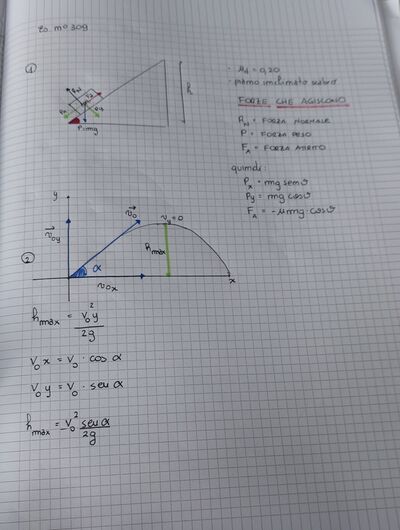 Es n° 309
1
h
P=mg
· μd = 0,20
· piano inclinato scabro
FORZE CHE AGISCONO
RN = FORZA NORMALE
P = FORZA PESO
FA = FORZA ATTRITO
quindi:
Px = mg senϑ
Py = mg cosϑ
FA = -μmg·cosϑ
2
y
v0y
v0
vy=0
hmax
α
v0x
x
hmax = v0y²/2g
V0x = V0 · cos α
V0y = V0 · sen α
hmax = V0² sen α/2g